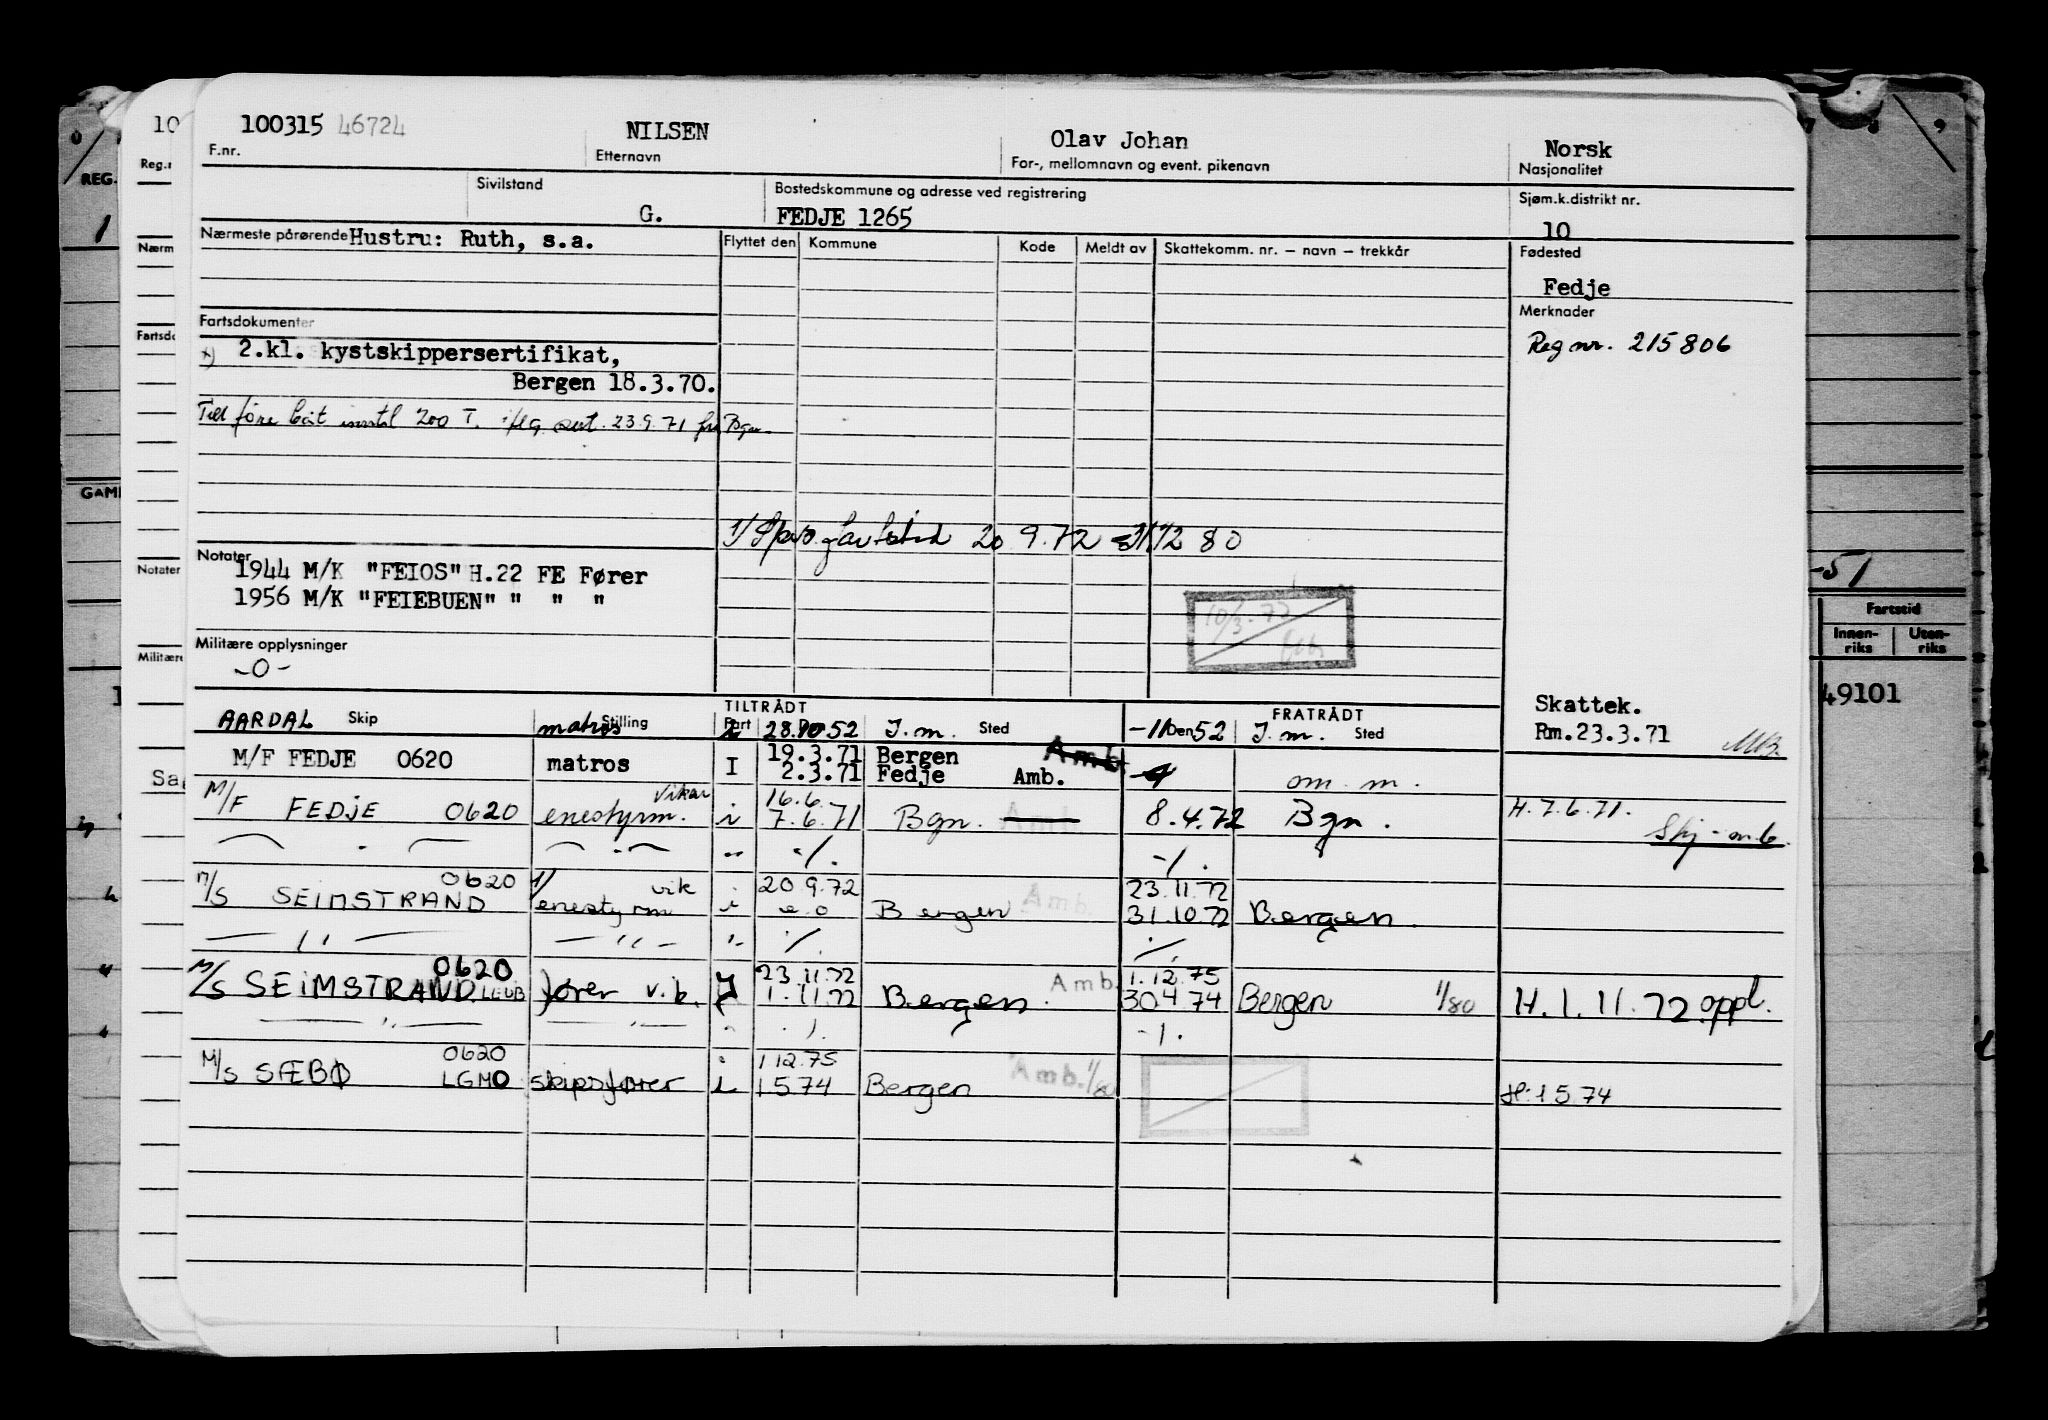 100315 46724
NILSEN
Olav Johan
Norsk
F.nr.
Etternavn
For-, mellomnavn og event. pikenavn
Nasjonalitet
Sivilstand
G.
Bostedskommune og adresse ved registrering
FEDJE 1265
Sjøm.k.distrikt nr.
10
Nærmeste pårørende Hustru: Ruth, s.a.
Flyttet den
Kommune
Kode
Meldt av
Skattekomm. nr. – navn – trekkår
Fødested
Fedje
Merknader
Reg nr. 215806
Fartsdokumenter
x) 2.kl. kystskippersertifikat,
Bergen 18.3.70.
Till føre båt inntil 200 T. iflg sert. 23.9.71 fra Bgn.
20 9.72 - 31/12 80
Notater
1944 M/K "FEIOS" H.22 FE Fører
1956 M/K "FEIEBUEN" " " "
10/3-72
Militære opplysninger
-0-
Skattek.
Rm.23.3.71
TILTRÅDT
FRATRÅDT
Skip
Stilling
Fart
Den
Sted
Den
Sted
AARDAL matros i 28.10 52 I.m. -11 52 I.m.
M/F FEDJE 0620 matros I 19.3.71 Bergen Amb.
2.3.71 Fedje Amb. om. m.
M/F FEDJE 0620 enestyrm. vikar i 16.6.
7.6.71 Bgn. Amb. 8.4.72 Bgn. H.7.6.71.
-/. -/.
M/S SEIMSTRAND 0620 1/ enestyrm vik i 20.9.72 23.11.72
e.o Bergen Amb. 31.10.72 Bergen.
— " — — " — "- ./. ./.
M/S SEIMSTRAND 0620 LLUB fører v.b. 23.11.72 Amb. 1.12.75
1.11.72 Bergen. 30 4 74 Bergen 1/80 H.1.11.72 oppl.
— " — — " — -/.
M/S SÆBØ 0620 LGMO skipsfører i 1 12.75
1 5 74 Bergen Amb. 1/80 H: 1 5 74
10
Reg.n
Nærm
Fartsdo
Notater
Militære
REG.
1
GAM
8 9
-51
Fartstid
Innen-
riks
Uten-
riks
49101